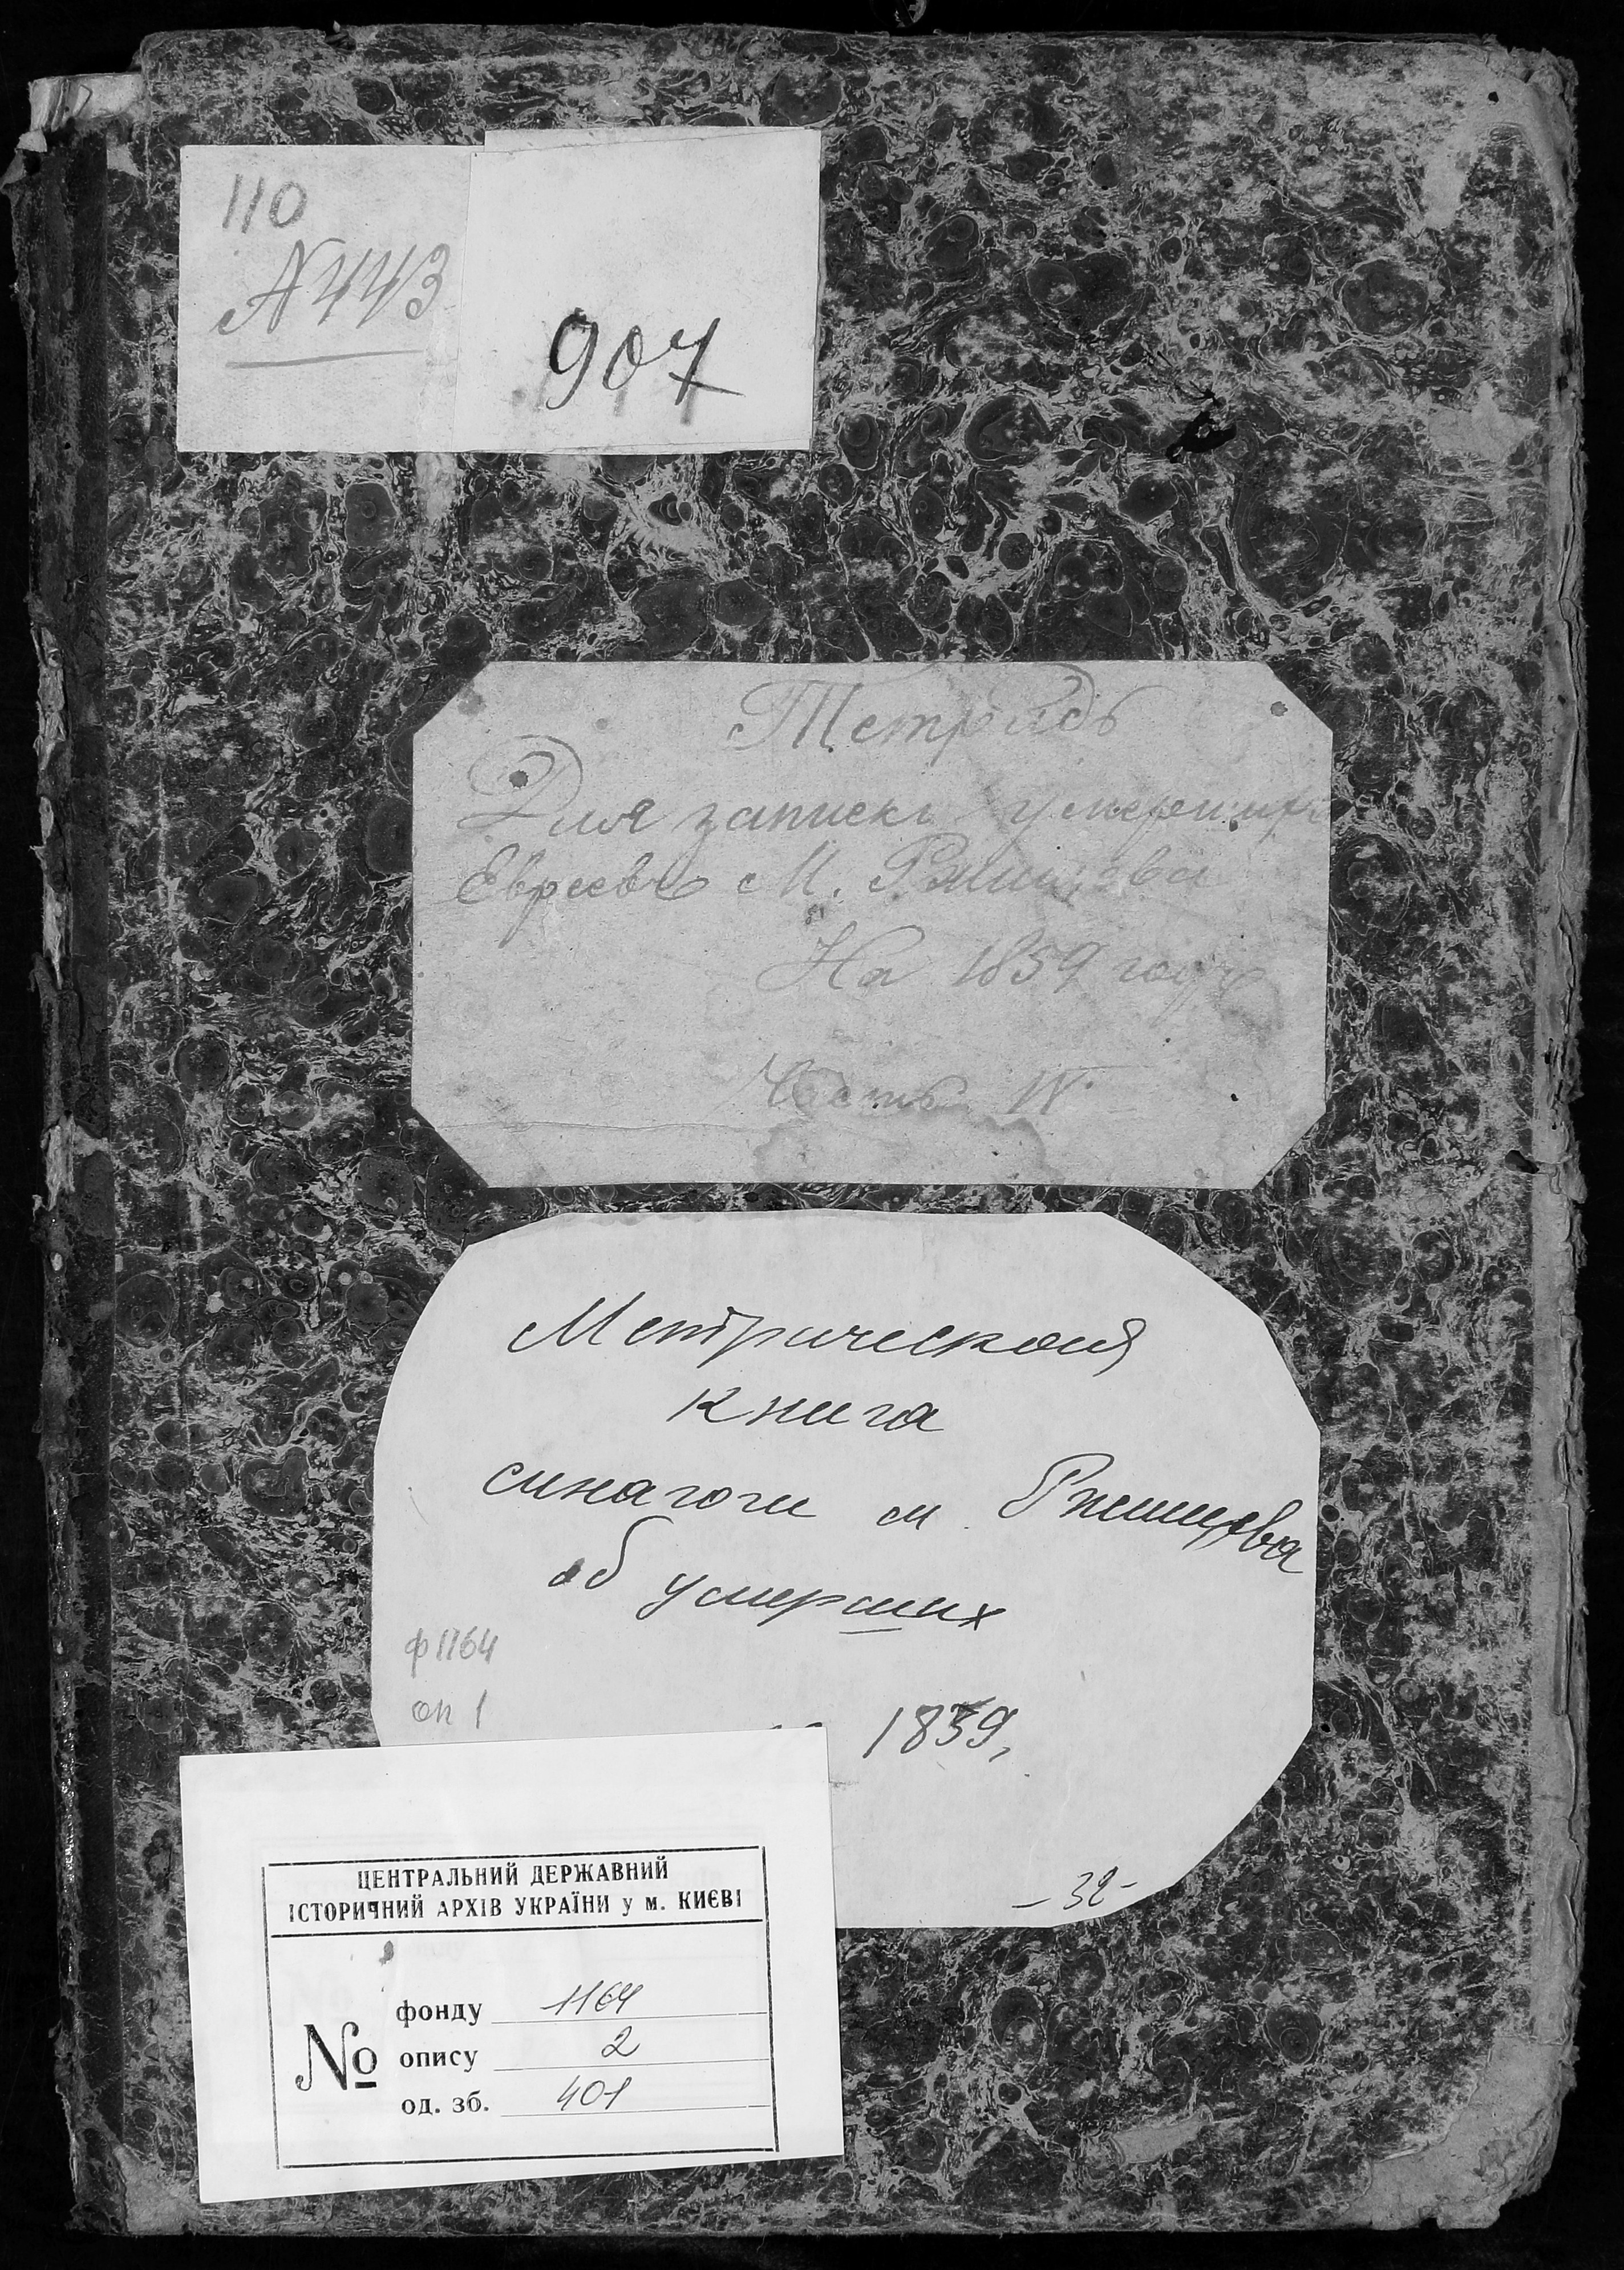 110
№ 443
907
Тетрадь
Для записки умерших
Евреевъ М. Ржищева
На 1859 годъ
Часть IV
Метрическая
книга
синагоги м. Ржищева
об умерших
ф 1164
оп 1
1859,
- 32 -
ЦЕНТРАЛЬНИЙ ДЕРЖАВНИЙ
ІСТОРИЧНИЙ АРХІВ УКРАЇНИ у м. КИЄВІ
№
фонду 1164
опису 2
од. зб. 401